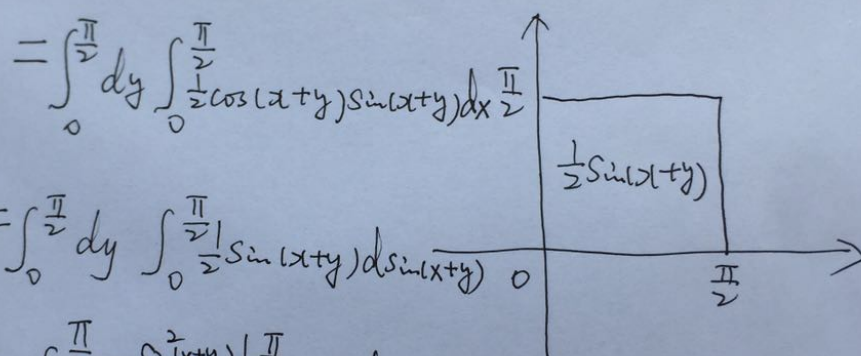 = ∫₀^{π/2} dy ∫₀^{π/2} ½ cos(x+y) sin(x+y) dx
= ∫₀^{π/2} dy ∫₀^{π/2} ½ sin(x+y) d sin(x+y)
π/2
½ sin(x+y)
0
π/2